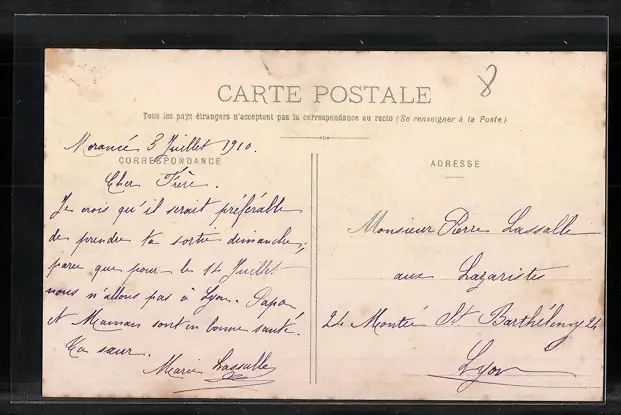 8
CARTE POSTALE
Tous les pays étrangers n'acceptent pas la correspondance au recto (Se renseigner à la Poste)
Morancé 3 Juillet 1910.
CORRESPONDANCE
Cher Frère.
Je crois qu'il serait préférable
de prendre ta sortie dimanche,
parce que pour le 14 Juillet
nous n'allons pas à Lyon. Papa
et Maman sont en bonne santé.
Ta sœur.
Marie Lassalle
ADRESSE
Monsieur Pierre Lassalle
aux Lazaristes
24 Montée St. Barthélemy 24
Lyon